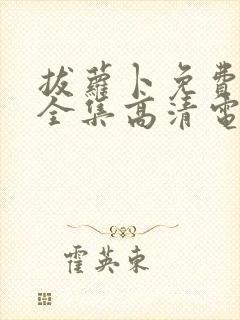 拔蘿卜免費
全集高清電
霍英東